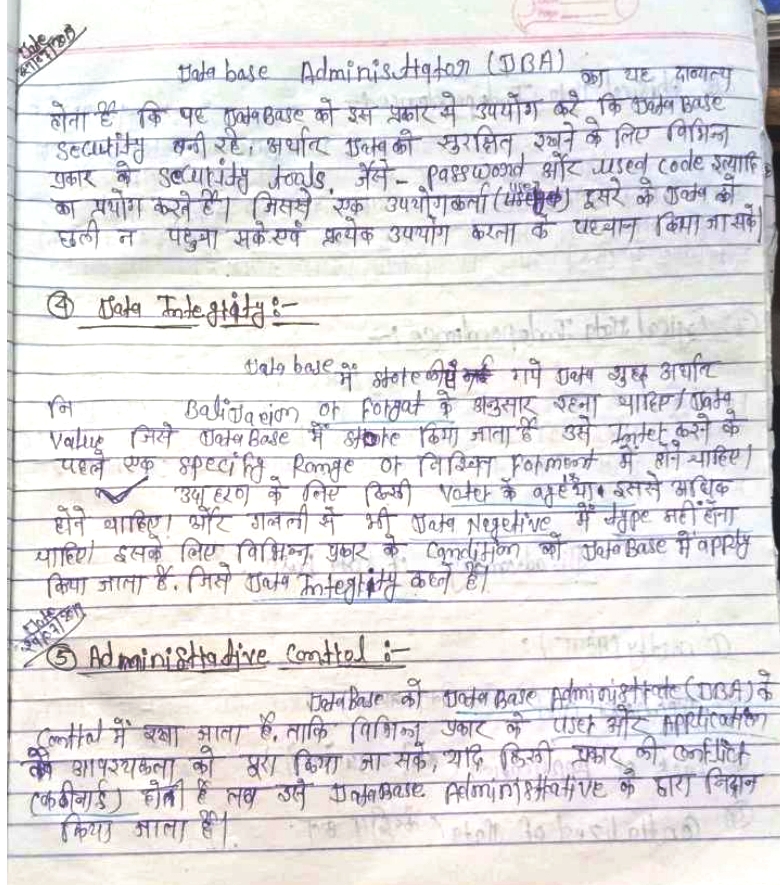 Date
Data base Administrator (DBA) का यह दायित्व
होता है कि वह DataBase को इस प्रकार से उपयोग करे कि Data Base
Security बनी रहे, अर्थात Data को सुरक्षित रखने के लिए विभिन्न
प्रकार के Security tools, जैसे - Password और used code इत्यादि
का प्रयोग करते है। जिससे एक उपयोगकर्ता दूसरे के Data को
न पहुंचा सके एवं प्रत्येक उपयोग करता के पहचान किया जा सके।
④ Data Integrity :-
Data base में store किये गये Data शुद्ध अर्थात
or Forgat के अनुसार रहना चाहिए। Data
Value जिसे DataBase में store किया जाता है उसे Inter करने के
पहले एक specify Range or निश्चित Formant में होने चाहिए।
उदाहरण के लिए किसी Voter के इससे अधिक
होने चाहिए। और गलती से भी Data Negetive में type नहीं होना
चाहिए। इसके लिए विभिन्न प्रकार के Condition को Data Base में apply
किया जाता है. जिसे Data Integrity कहते हैं।
Date
⑤ Administrative Control :-
DataBase को Data Base Administrate (DBA) के
Control में रखा जाता है. ताकि विभिन्न प्रकार के User और Application
की आवश्यकता को पूरा किया जा सके, यदि किसी प्रकार की Conflict
(कठीनाई) होती है तब उसे DataBase Administrative के द्वारा निदान
किया जाता है।